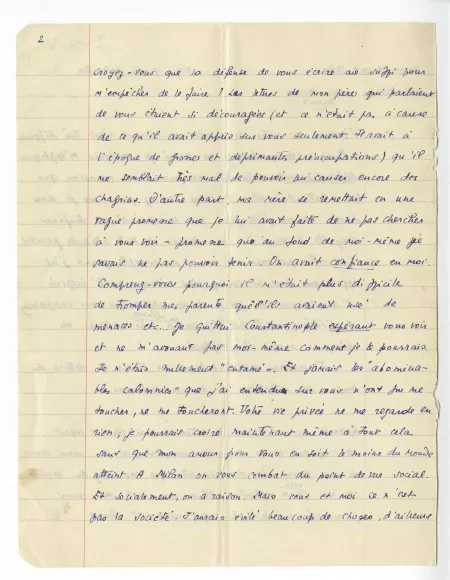 2
Croyez-vous que la défense de vous écrire ait suffi pour
m'empêcher de le faire ? Les lettres de mon père qui parlaient
de vous étaient si découragées (et ce n'était pas à cause
de ce qu'il avait appris sur vous seulement. Il avait à
l'époque de graves et déprimantes préoccupations) qu'il
me semblait très mal de pouvoir lui causer encore des
chagrins. D'autre part, ma mère se remettait en une
vague promesse que je lui avait faite de ne pas chercher
à vous voir - promesse que au fond de moi-même je
savais ne pas pouvoir tenir. On avait confiance en moi.
Comprenez-vous pourquoi il m'était plus difficile
de tromper mes parents que s'ils avaient usé de
menaces etc... Je quittai Constantinople espérant vous voir
et ne m'avouant pas moi-même comment je le pourrais.
Je n'étais nullement "entamée". Et jamais les "abomina-
bles calomnies" que j'ai entendues sur vous n'ont pu me
toucher, ne me toucheront. Votre vie privée ne me regarde en
rien, je pourrais croire maintenant même à tout cela
sans que mon amour pour vous en soit le moins du monde
atteint. A Milan on vous combat du point de vue social.
Et socialement, on a raison. Mais vous et moi ce n'est
pas la société. J'aurais évité beaucoup de choses, d'ailleurs